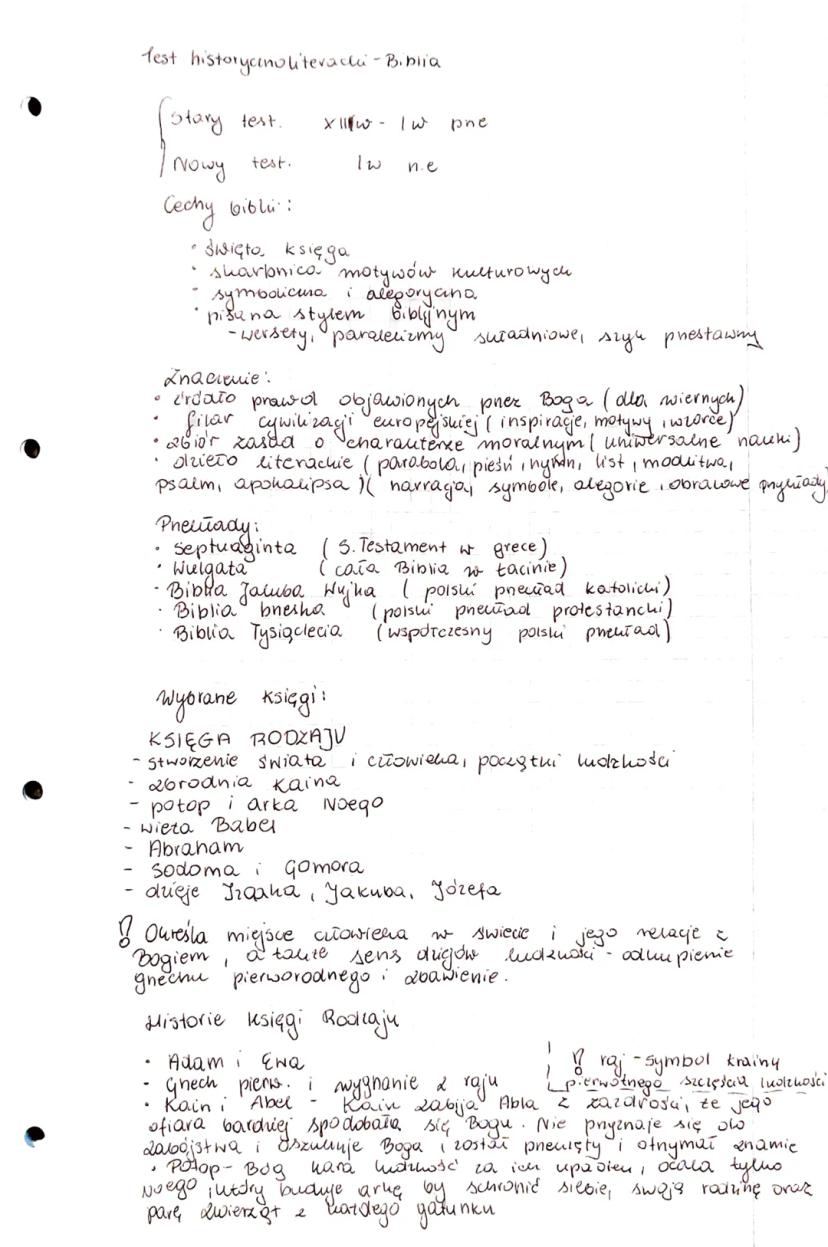 Test historycznoliteracki - Biblia
Stary test. XIIIw - I w pne
Nowy test. I w n.e
Cechy biblii:
• święta księga
• skarbnica motywów kulturowych
- symboliczna i alegoryczna
• pisana stylem biblijnym
- wersety, paralelizmy składniowe, szyk przestawny
Znaczenie:
• źródało prawd objawionych przez Boga (dla wiernych)
• filar cywilizacji europejskiej (inspiracje, motywy, wzorce)
• zbiór zasad o charakterze moralnym (uniwersalne nauki)
• dzieło literackie (parabola, pieśń, hymn, list, modlitwa,
psalm, apokalipsa) (narracja, symbole, alegorie, obrazowe przykłady)
Przekłady:
• Septuaginta (S. Testament w grece)
• Wulgata (cała Biblia w łacinie)
• Biblia Jakuba Wujka (polski przekład katolicki)
• Biblia brzeska (polski przekład protestancki)
• Biblia Tysiąclecia (współczesny polski przekład)
Wybrane księgi:
KSIĘGA RODZAJU
- stworzenie świata i człowieka, początki ludzkości
- zbrodnia Kaina
- potop i arka Noego
- wieża Babel
- Abraham
- Sodoma i Gomora
- dzieje Izaaka, Jakuba, Józefa
! Określa miejsce człowieka w świecie i jego relacje z
Bogiem, a także sens dziejów ludzkości - odkupienie
grzechu pierworodnego i zbawienie.
Historie Księgi Rodzaju
• Adam i Ewa
! raj - symbol krainy
pierwotnego szczęścia ludzkości
- Grzech pierw. i wygnanie z raju
• Kain i Abel - Kain zabija Abla z zazdrości, że jego
ofiara bardziej spodobała się Bogu. Nie przyznaje się do
zabójstwa i oszukuje Boga, został przeklęty i otrzymał znamię
• Potop - Bóg kara ludzkość za ich upadek, ocala tylko
Noego, który buduje arkę by schronić siebie, swoją rodzinę oraz
parę zwierząt z każdego gatunku